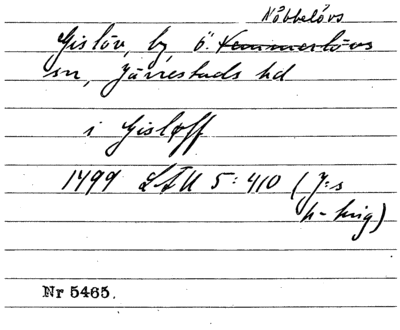 Nöbbelövs
Gislöv, by, Ö. Hammenhövs
sn, Järrestads hd
i Gisløff
1499 LÅU 5:410 (J:s
h-king)
Nr 5465.